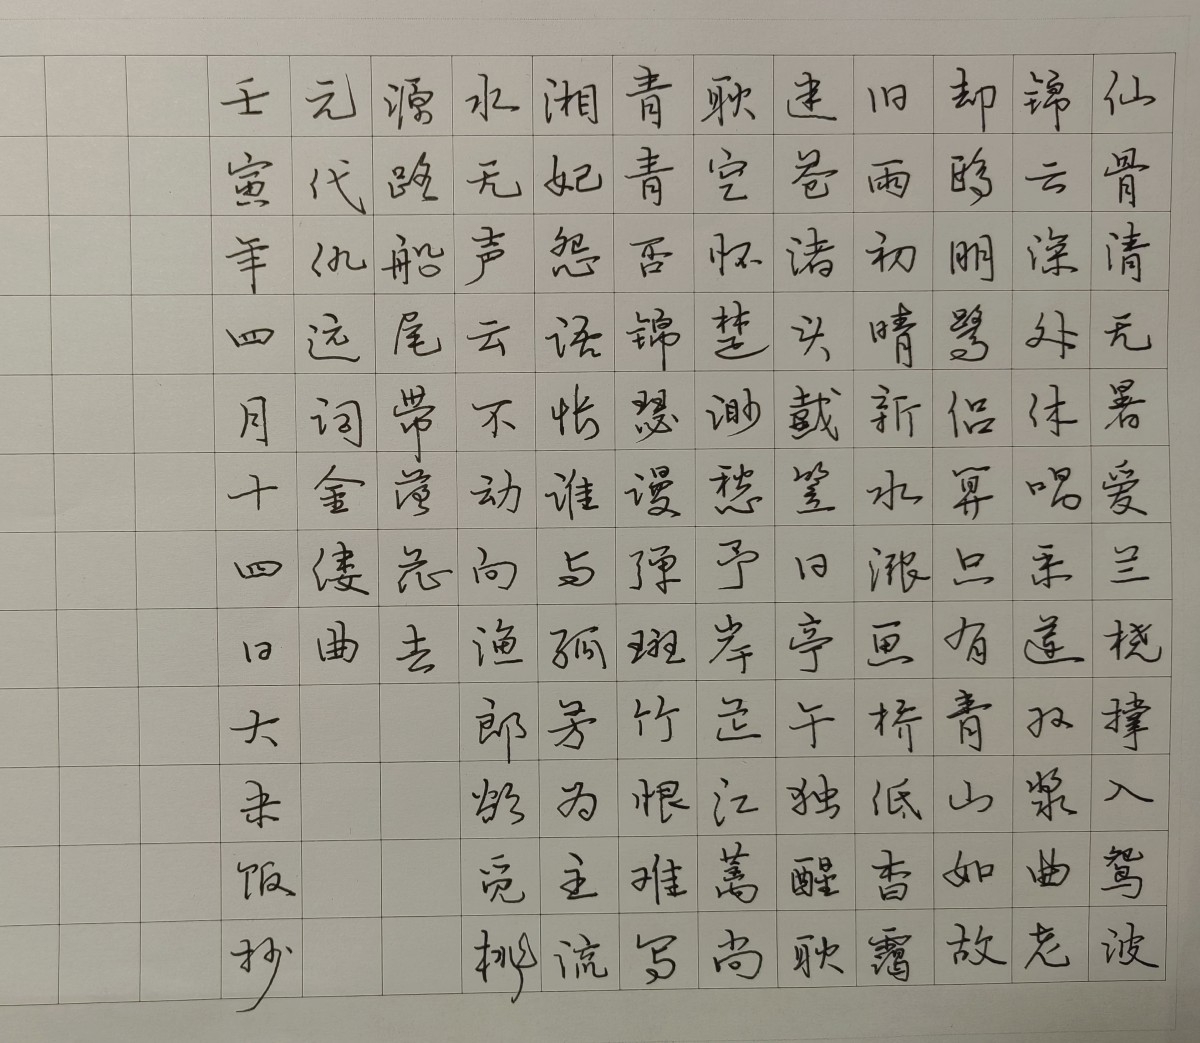 仙骨清无暑爱兰桡撑入鸳波
锦云深处休唱采莲双桨曲老
却鸥朋鹭侣算只有青山如故
旧雨初晴新水涨画桥低杳霭
迷苍渚头戴笠日亭午独醒耿
耿空怀楚渺愁予岸芷江蓠尚
青青否锦瑟谩弹斑竹恨难写
湘妃怨语怅谁与孤芳为主流
水无声云不动向渔郎欲觅桃
源路船尾带落花去
元代仇远词金缕曲
壬寅年四月十四日大米饭抄